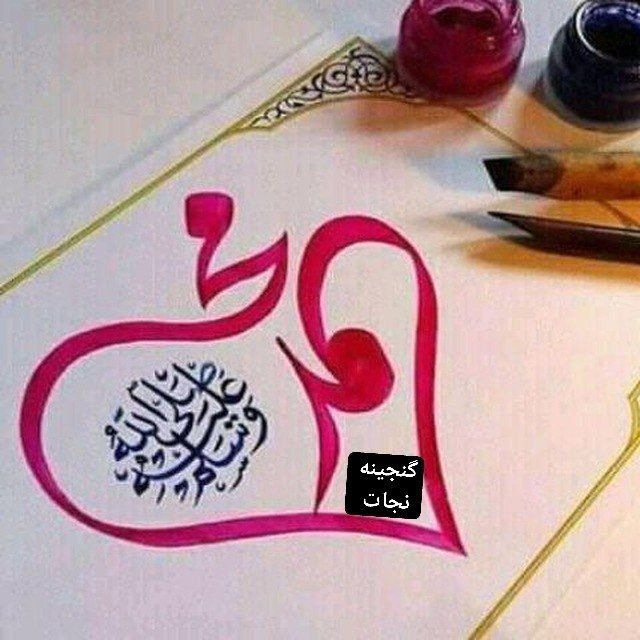 محمد
صلى الله عليه وسلم
گنجینه
نجات